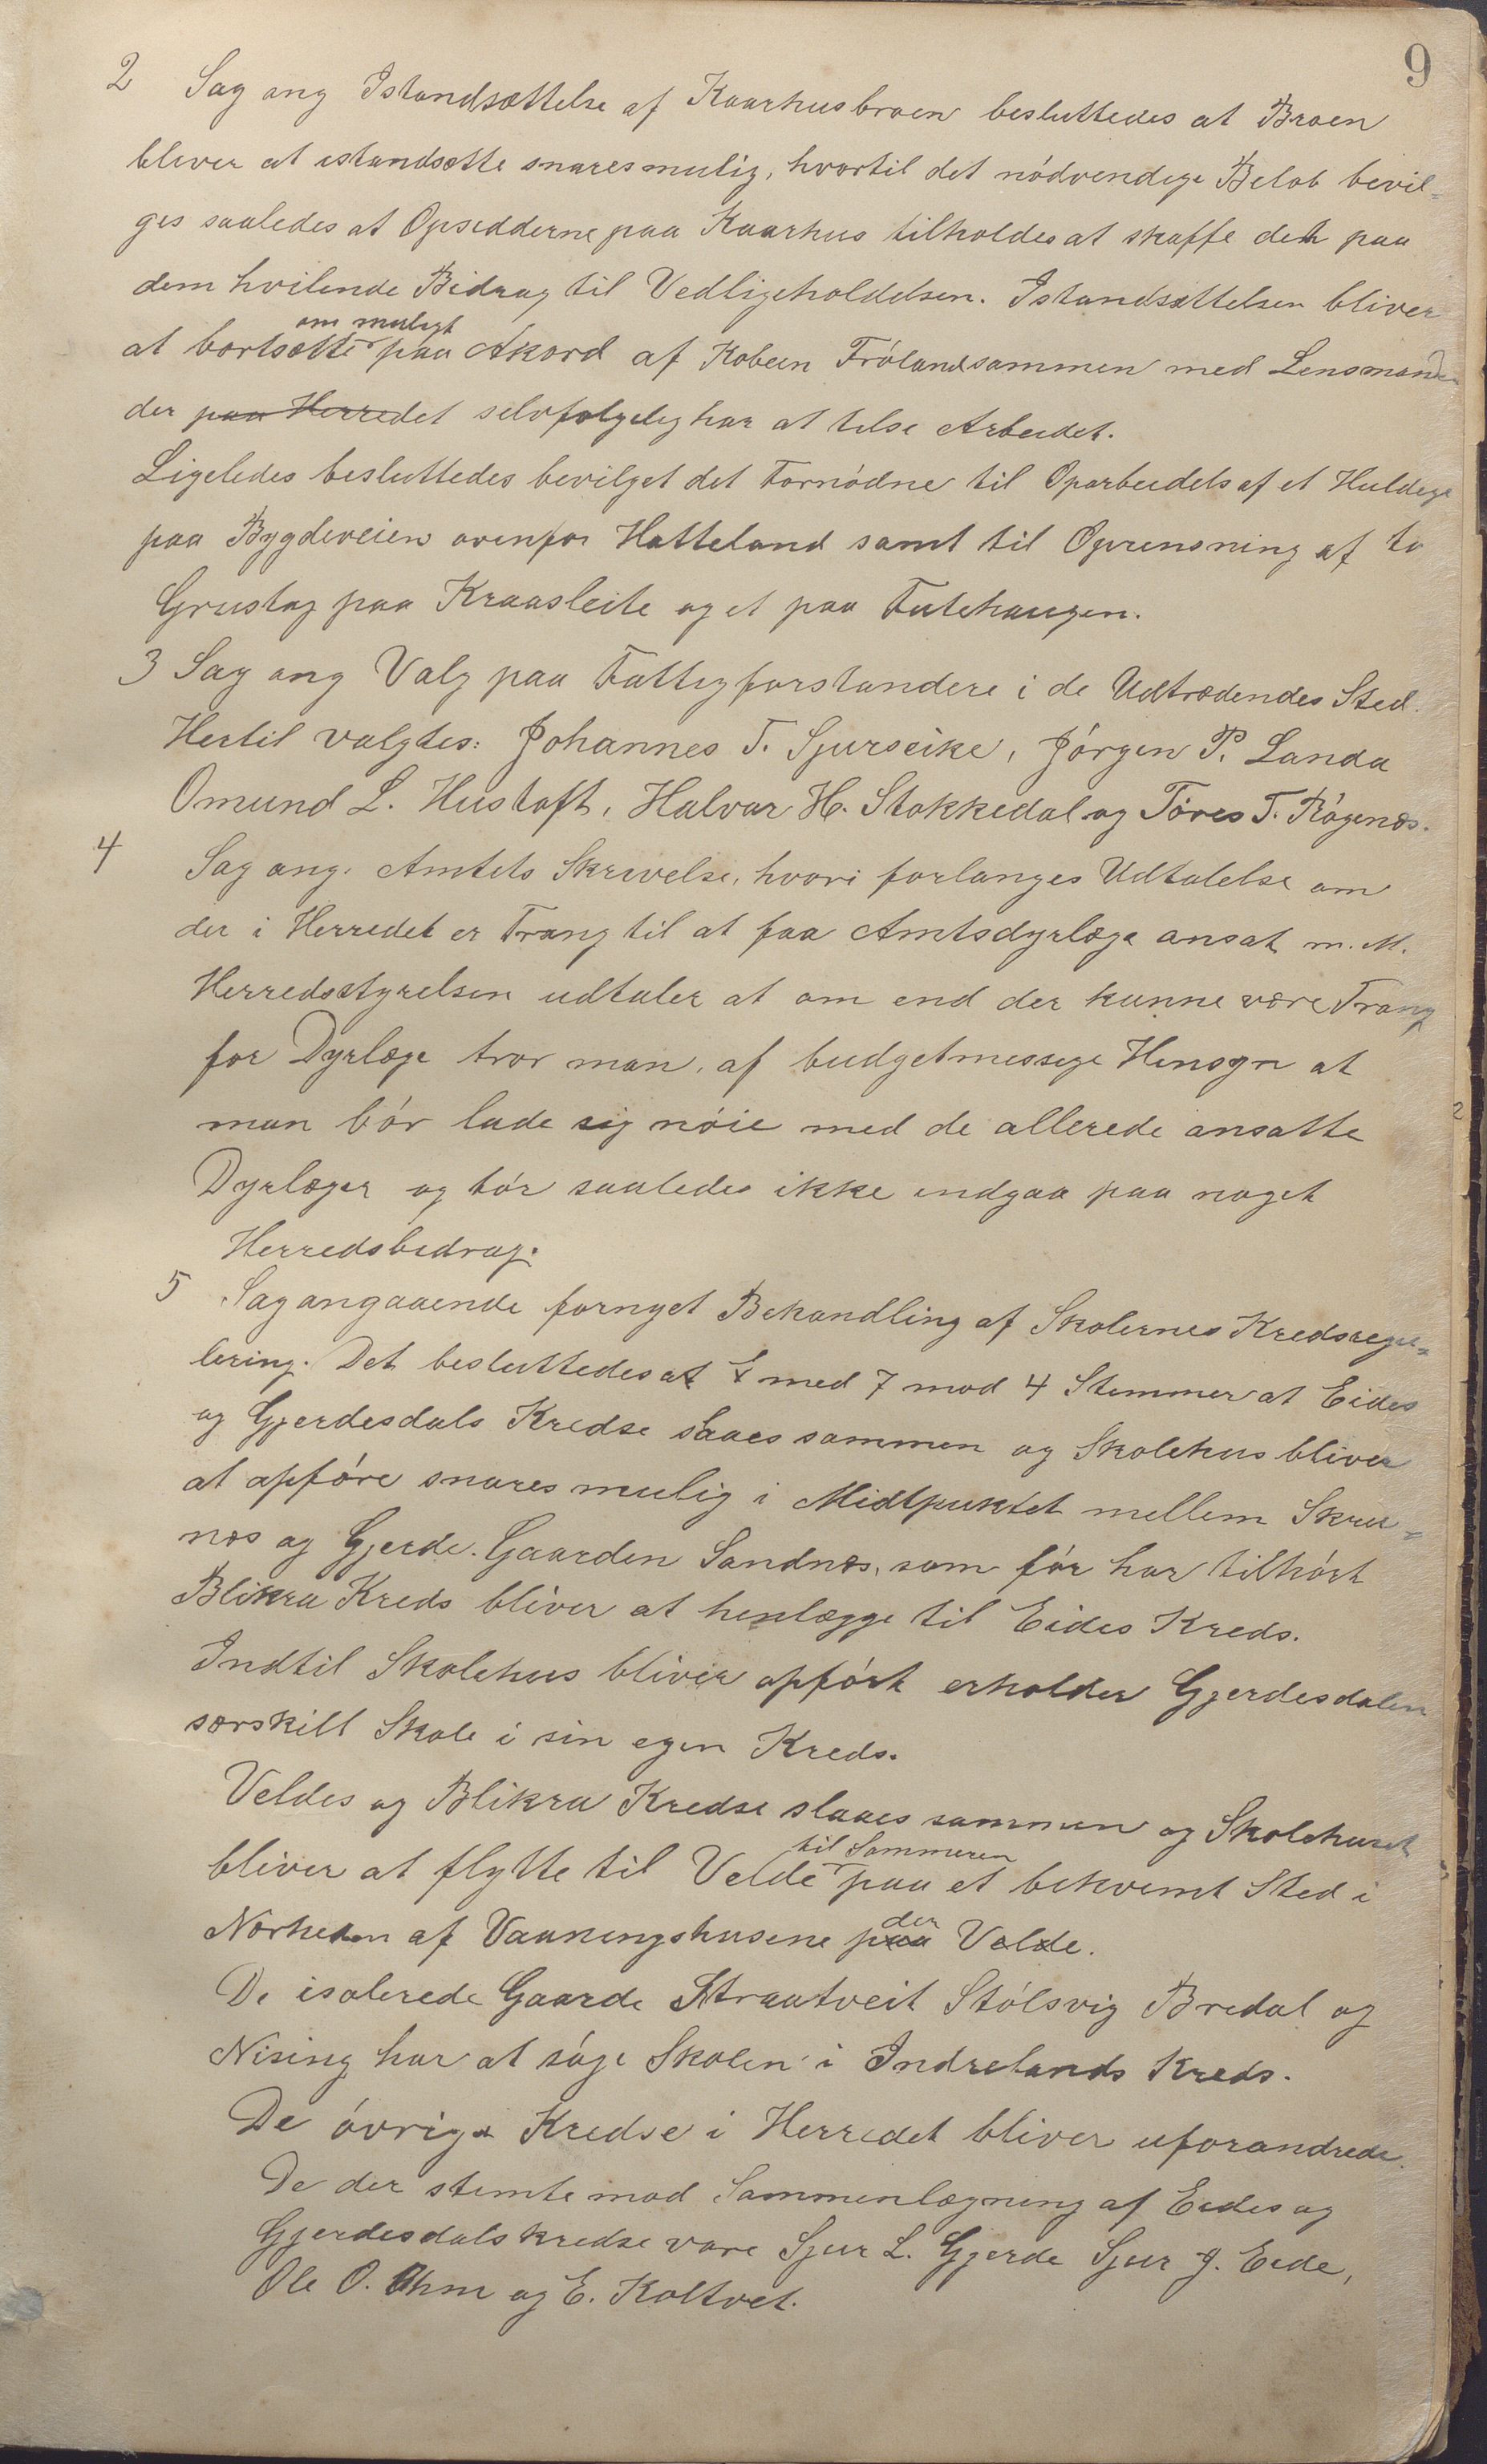 9
2 Sag ang Istandsættelse af Kaarhusbroen besluttedes at Broen
bliver at istandsætte snaresmulig, hvortil det nödvendige Belöb bevil-
ges saaledes at Opsidderne paa Kaarhus tilholdes at skaffe det paa
dem hvilende Bidrag til Vedligeholdelsen. Istandsættelsen bliver
om muligt
at bortsætte paa Akord af Kobeen Fröland sammen med Lensmanden
der paa Herredet selvfølgelig har at tilse Arbeidet.
Ligeledes besluttedes bevilget det Fornödne til Oparbeidels af et Huldige
paa Bygdeveien ovenfor Hatteland samt til Oprensning af to
Grustag paa Kraasleite og et paa Futehaugen.
3 Sag ang Valg paa Fattigforstandere i de Udtrædendes Sted.
Hertil valgtes: Johannes T. Sjurseike, Jörgen P. Landa
Omund L. Hustoft, Halvar H. Stakkedal og Töres T. Rögenæs.
4 Sag ang. Amtets Skrivelse, hvori forlanges Udtalelse om
der i Herredet er Trang til at faa Amtsdyrlæge ansat m. M.
Herredsstyrelsen udtaler at om end der kunne være Trang
for Dyrlæge tror man, af budgetmessige Hensyn at
man bör lade sig nöie med de allerede ansatte
Dyrlæger og tör saaledes ikke indgaa paa noget
Herredsbidrag.
5 Sag angaaende fornyet Behandling af Skolernes Kredsregu-
lering. Det besluttedes at med 7 mod 4 Stemmer at Eides
og Gjerdesdals Kredse slaaes sammen og Skolehus bliver
at opföre snares mulig i Midtpuktet mellem Skru-
næs og Gjerde. Gaarden Sandnæs, som för har tilhört
Blikra Kreds bliver at henlægge til Eides Kreds.
Indtil Skolehus bliver opfört erholder Gjerdesdalen
særskilt Skole i sin egen Kreds.
Veldes og Blikra Kredse slaaes sammen og Skolehuset
til Sommeren
bliver at flytte til Velde paa et bekvemt Sted i
der
Nærheden af Vaaningshusene paa Velde.
De isolerede Gaarde Straatveit Stölsvig Bredal og
Nising har at söge Skolen i Indrelands Kreds.
De övrige Kredse i Herredet bliver uforandrede.
De der stemte mod Sammenlægning af Eides og
Gjerdesdals kredse vare Sjur L. Gjerde Sjur J. Eide,
Ole O. Ohm og E. Koltvet.